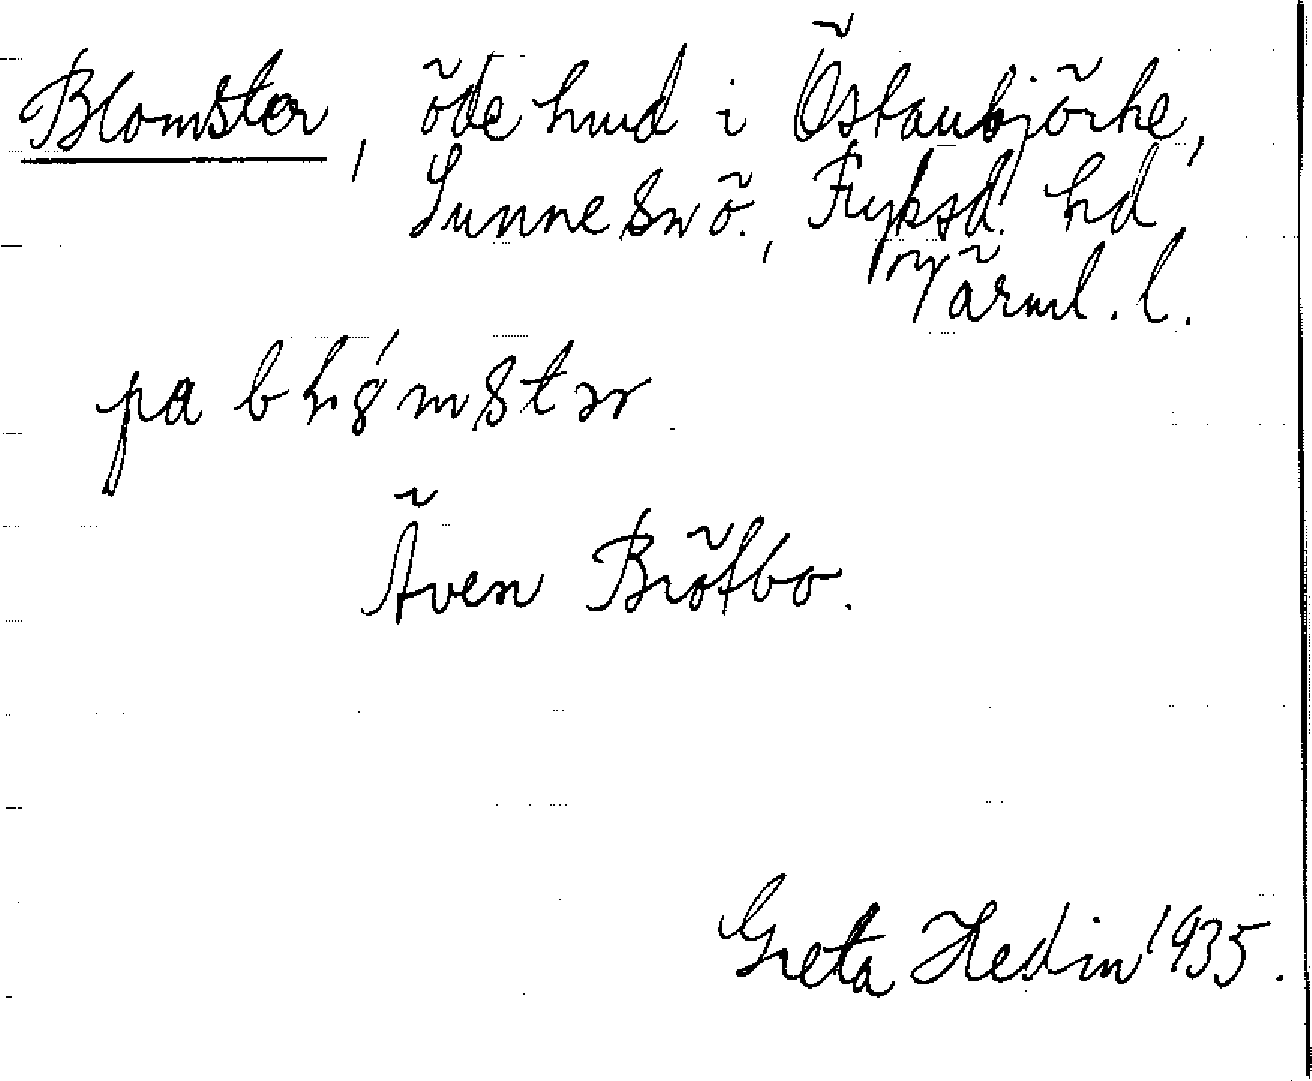 Blomster, öde hmd i Östanbjörke,
Sunne sn ö., Fryksd. hd
Värml. l.
pa
Även Bråtbo.
Greta Hedin 1935.